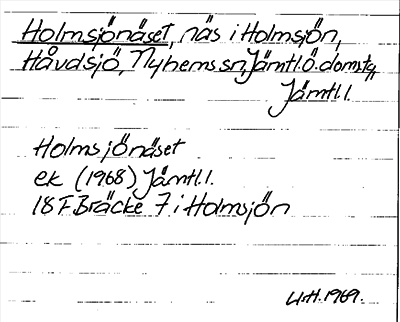 Holmsjönäset, näs i Holmsjön,
Håvdsjö, Nyhems sn, Jämtl.ö. domsg,
Jämtl. l.
Holmsjönäset
ek (1968) Jämtl. l.
18 F Bräcke 7 i Holmsjön
1969.